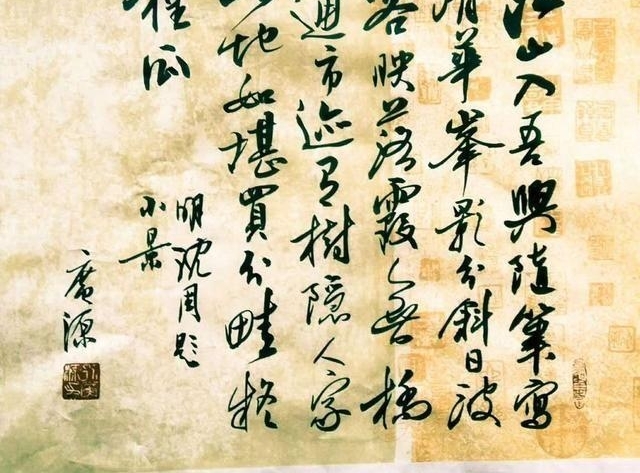 江山入吾興隨筆寫
清華峯影分斜日波
容映落霞無橋
通市迹有樹隱人家
此地如堪買分畦
種瓜
明沈周題
小景
廣源